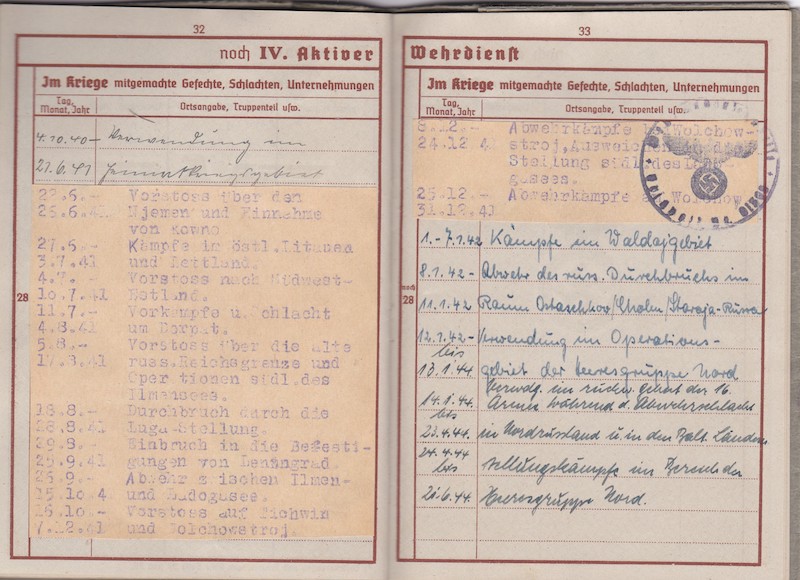 32
noch IV. Aktiver
Im Kriege mitgemachte Gefechte, Schlachten, Unternehmungen
Tag, Monat, Jahr
Ortsangabe, Truppenteil usw.
4.10.40 - Verwendung im
21.6.41 Heimatkriegsgebiet
22.6.- Vorstoss über den
26.6.41 Njemen und Einnahme
von Kowno
27.6.- Kämpfe in östl.Litauen
3.7.41 und Lettland.
4.7.- Vorstoss nach Südwest-
10.7.41 Estland.
11.7.- Vorkämpfe u.Schlacht
4.8.41 um Dorpat.
5.8.- Vorstoss über die alte
17.8.41 russ.Reichsgrenze und
Operationen südl.des
Ilmensees.
18.8.- Durchbruch durch die
28.8.41 Luga-Stellung.
29.8.- Einbruch in die Befesti-
25.9.41 gungen von Leningrad.
26.9.- Abwehr zwischen Ilmen-
15.10.4 und Ladogasee.
16.10- Vorstoss auf Tichwin
7.12.41 und Wolchowstroj.
28
33
Wehrdienst
Im Kriege mitgemachte Gefechte, Schlachten, Unternehmungen
Tag, Monat, Jahr
Ortsangabe, Truppenteil usw.
8.12.- Abwehrkämpfe Wolchow-
24.12 41 stroj, Ausweichen
Stellung südl.des
gasees.
25.12.- Abwehrkämpfe Wolchow
31.12.41
1.-7.1.42 Kämpfe im Waldajgebiet
8.1.42- Abwehr des russ. Durchbruchs im
noch 28
11.1.42 Raum Ostaschkow/Cholm/Staraja-Russa
12.1.42- Verwendung im Operations-
bis
13.1.44 gebiet der Heeresgruppe Nord
Verwdg. im rückw. Gebiet der 16.
14.1.44 Armee während d. Abwehrschlacht
bis
23.4.44 in Nordrussland u. in den Balt. Ländern
24.4.44
bis Stellungskämpfe im Bereich der
26.6.44 Heeresgruppe Nord.